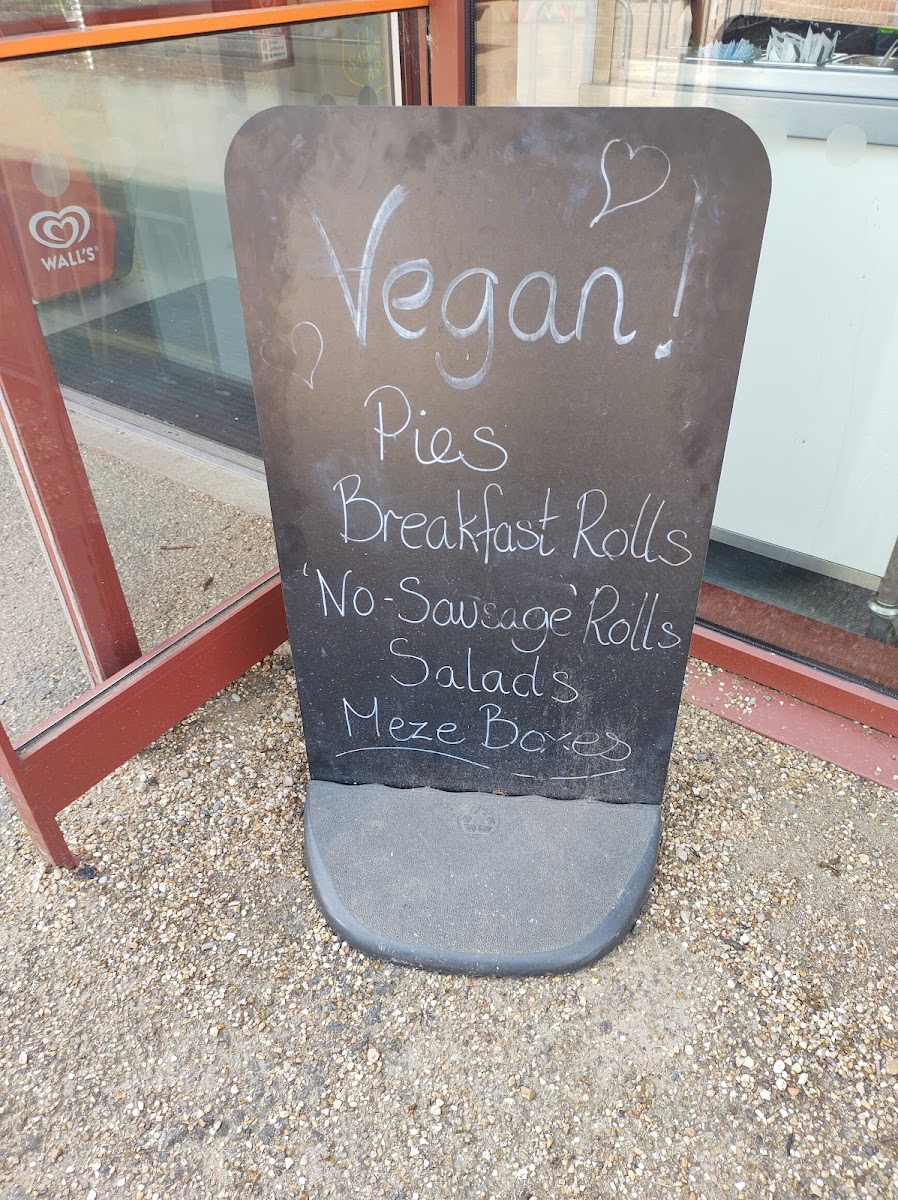 WALL'S
Vegan!
Pies
Breakfast Rolls
'No-Sausage' Rolls
Salads
Meze Boxes